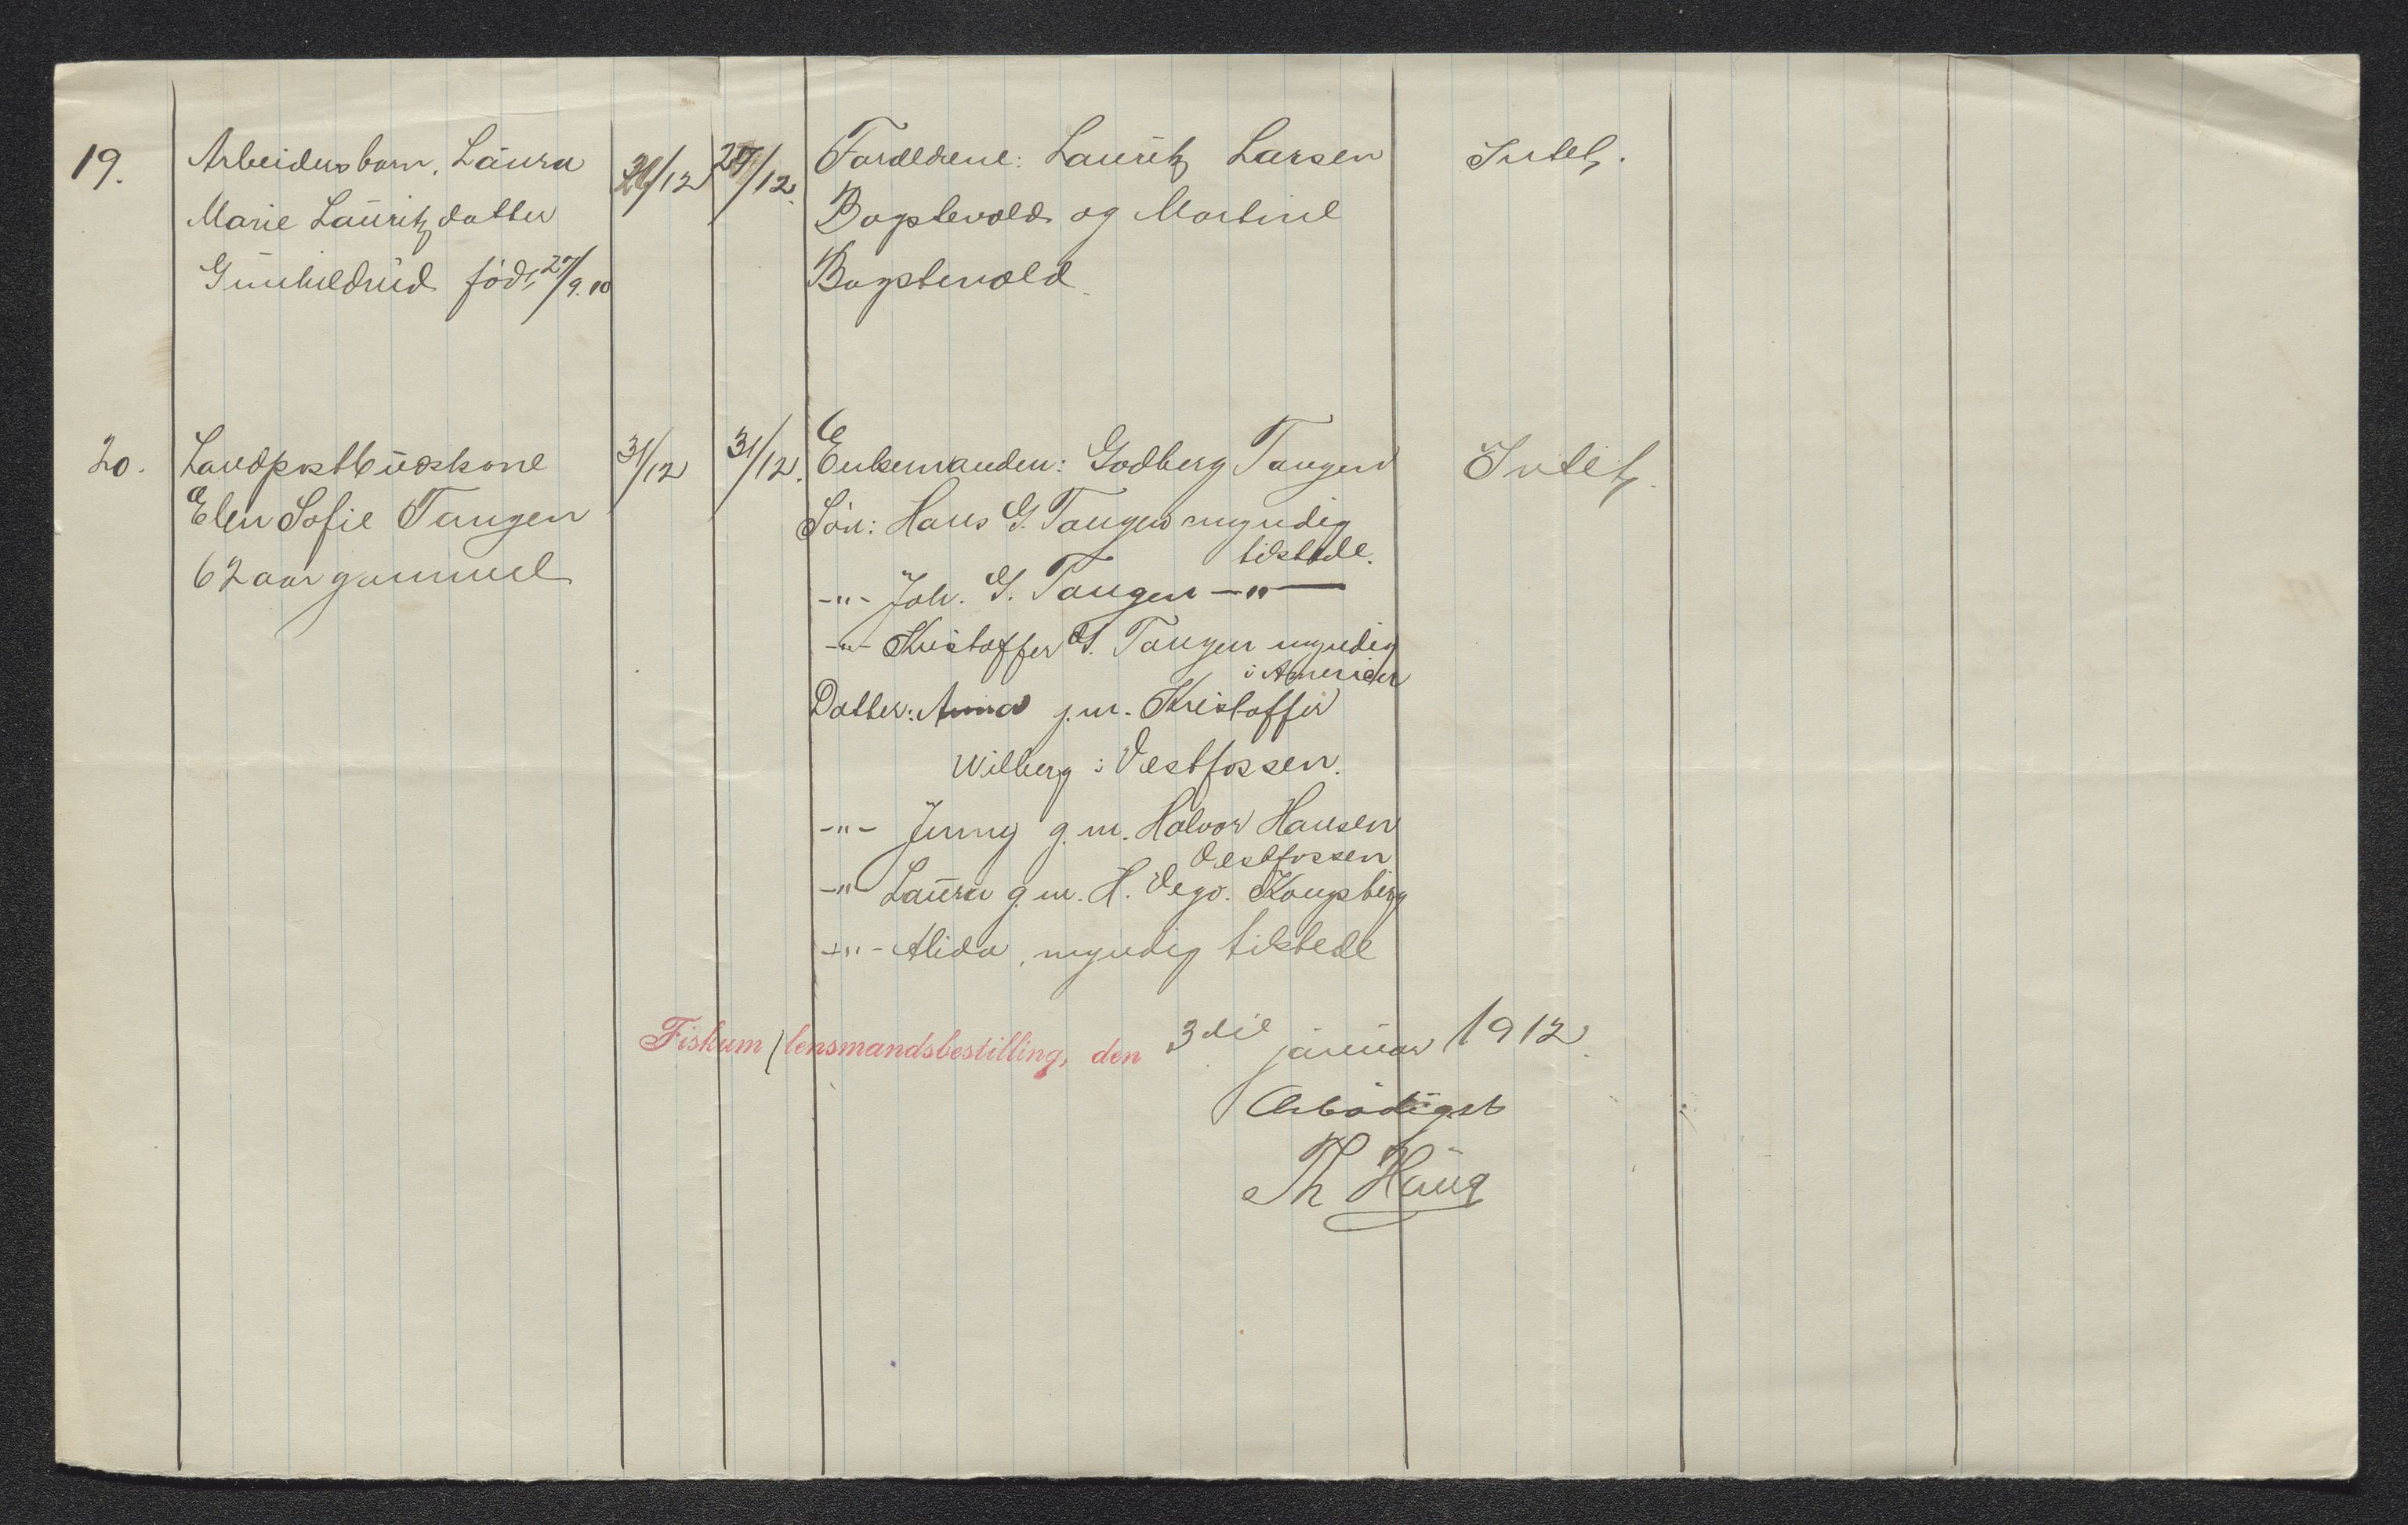 19.
Arbeidersbarn, Laura
Marie Lauritzdatter
Gunhildrud født 27/9.10
26/12
27/12.
Forældrene: Lauritz Larsen
Bogstevold og Martine
Bogstevold
Intet.
20.
Landpostbudskone
Elen Sofie Tangen
62 aar gammel
31/12
31/12.
Enkemanden: Godberg Tangen
Søn: Hans G. Tangen myndig
tilstede.
-"- Joh. G. Tangen -"-
-"- Kristoffer G. Tangen myndig
i America
Datter: Anna g.m. Kristoffer
Wilberg i Vestfossen.
-"- Jenny g.m. Halvor Hansen
Vestfossen
-"- Laura g.m. H. Kongsberg
-"- Alida, myndig tilstede
Intet.
Fiskum lensmandsbestilling, den 3die januar 1912.
Ærbødigst
Th Haug